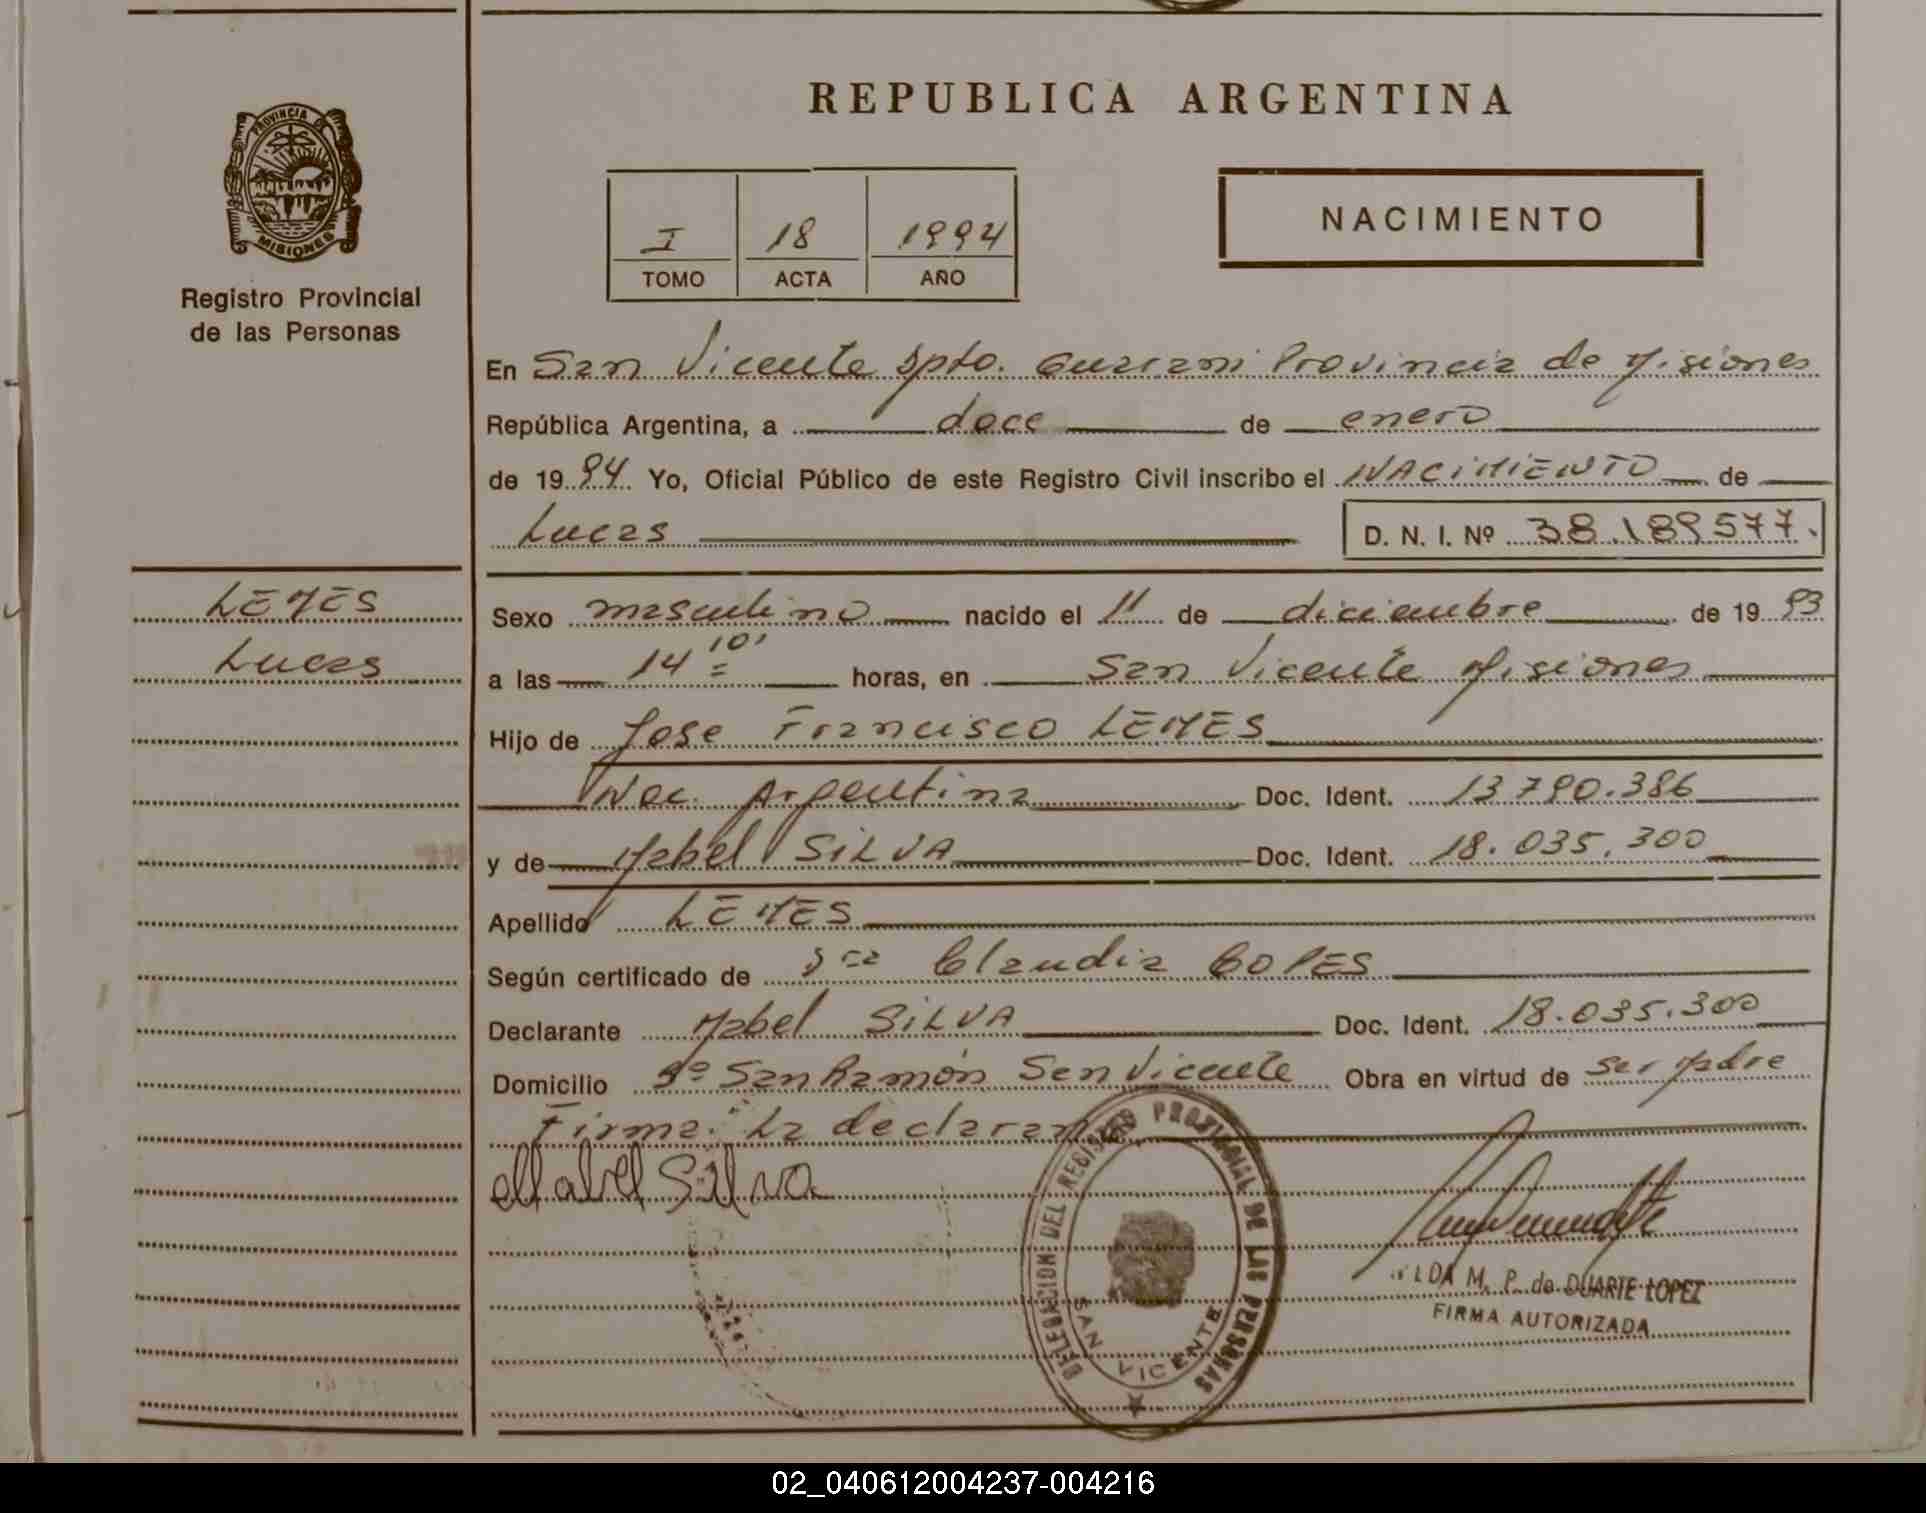 PROVINCIA DE
MISIONES
Registro Provincial
de las Personas
REPUBLICA ARGENTINA
I 18 1994
TOMO ACTA AÑO
NACIMIENTO
En San Vicente Dpto. Guarani Provincia de Misiones
República Argentina, a doce de enero
de 19 94 Yo, Oficial Público de este Registro Civil inscribo el NACIMIENTO de
Lucas D. N. I. Nº 38.189577.
LEMES
Lucas
Sexo masculino nacido el 11 de diciembre de 19 93
a las 14 10' horas, en San Vicente Misiones
Hijo de Jose Francisco LEMES
Nac. Argentina Doc. Ident. 13790.386
y de Mabel SILVA Doc. Ident. 18.035.300
Apellido LEMES
Según certificado de Dra Claudia
Declarante Mabel SILVA Doc. Ident. 18.035.300
Domicilio Bº San Ramón San Vicente Obra en virtud de ser Madre
Firma: La declarante
Mabel Silva
DELEGACION DEL REGISTRO PROVINCIAL DE LAS PERSONAS
SAN VICENTE
LDA M. P. de DUARTE LOPEZ
FIRMA AUTORIZADA
02_040612004237-004216